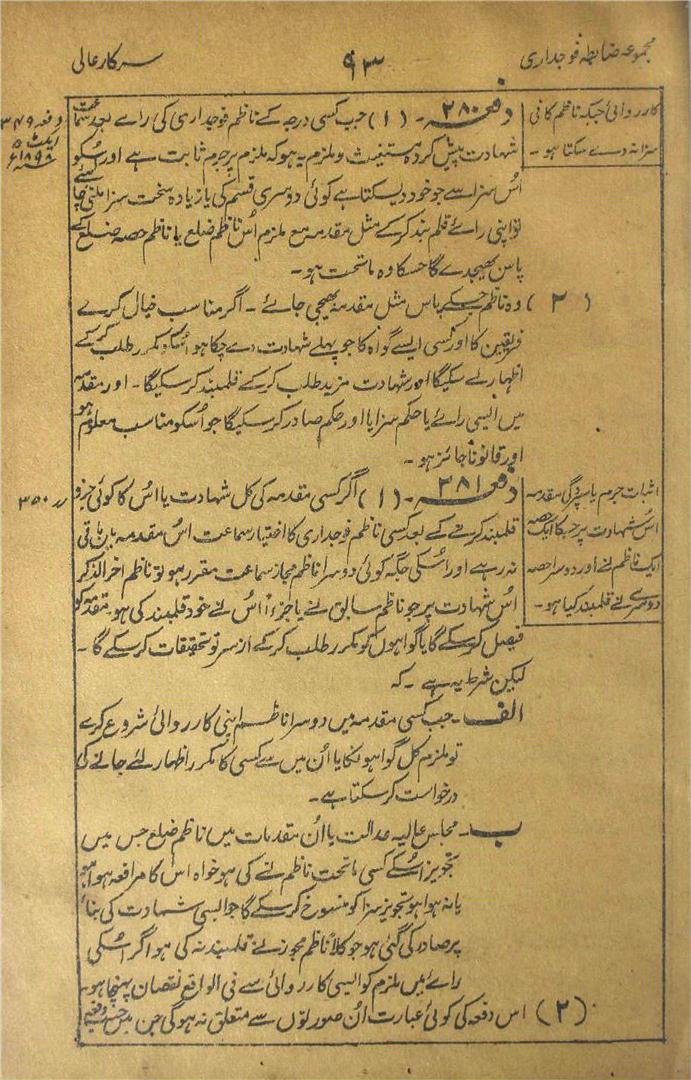 مجموعہ ضابطہ فوجداری
۹۳
سرکار عالی
کارروائی جبکہ ناظم کافی
سزا نہ دے سکتا ہو۔
دفعہ ۲۸۰۔ (۱) جب کسی درجہ کے ناظم فوجداری کی رائے بعد سماعت
دفعہ ۳۴۹
ایکٹ ۵
۱۸۹۸ء
شہادت پیش کردہ مستغیث و ملزم یہ ہو کہ ملزم پر جرم ثابت ہے اور اسکو
اُس سزا سے جو خود دیسکتا ہے کوئی دوسری قسم کی یا زیادہ سخت سزا ملنی چاہئے
تو اپنی رائے قلمبند کرکے مثل مقدمہ مع ملزم اُس ناظم ضلع یا ناظم حصہ ضلع کے
پاس بھیجدے گا جسکا وہ ماتحت ہو۔
(۲) وہ ناظم جسکے پاس مثل مقدمہ بھیجی جائے۔ اگر مناسب خیال کرے
فریقین کا اور کسی ایسے گواہ کا جو پہلے شہادت دے چکا ہو اسکو مکرر طلب کرکے
اظہار لے سکیگا اور شہادت مزید طلب کرکے قلمبند کرسکیگا۔ اور مقدمہ
میں ایسی رائے یا حکم سزا یا اور حکم صادر کرسکیگا جو اُسکو مناسب معلوم ہو
اور قانوناً جائز ہو۔
اثبات جرم یا سپردگی مقدمہ
اُس شہادت پر جسکا ایک حصہ
ایک ناظم نے اور دوسرا حصہ
دوسرے نے قلمبند کیا ہو۔
دفعہ ۲۸۱۔ (۱) اگر کسی مقدمہ کی کل شہادت یا اُس کا کوئی جزو
رر ۳۵۰
قلمبند کرنے کے بعد کسی ناظم فوجداری کا اختیار سماعت اُس مقدمہ میں باقی
نہ رہے اور اُسکی جگہ کوئی دوسرا ناظم مجاز سماعت مقرر ہو تو ناظم آخر الذکر
اُس شہادت پر جو ناظم سابق نے یا جزءاً اُس نے خود قلمبند کی ہو مقدمہ کو
فیصل کرسکے گا یا گواہوں کو مکرر طلب کرکے از سر نو تحقیقات کرسکے گا۔
لیکن شرط یہ ہے۔ کہ
الف۔ جب کسی مقدمہ میں دوسرا ناظم اپنی کارروائی شروع کرے
تو ملزم کل گواہوں کا یا اُن میں سے کسی کا مکرر اظہار لئے جانے کی
درخواست کرسکتا ہے۔
ب۔ مجلس عالیہ عدالت یا اُن مقدمات میں ناظم ضلع جس میں
تجویز اُسکے کسی ماتحت ناظم نے کی ہو خواہ اس کا مرافعہ ہوا ہو
یا نہ ہوا ہو تجویز سزا کو منسوخ کرسکے گا جو ایسی شہادت کی بناء
پر صادر کی گئی ہو جو کلاً ناظم مجوز نے قلمبند نہ کی ہو اگر اُسکی
رائے میں ملزم کو ایسی کارروائی سے فی الواقع نقصان پہنچا ہو۔
(۲) اس دفعہ کی کوئی عبارت اُن صورتوں سے متعلق نہ ہوگی جن میں حسب دفعہ